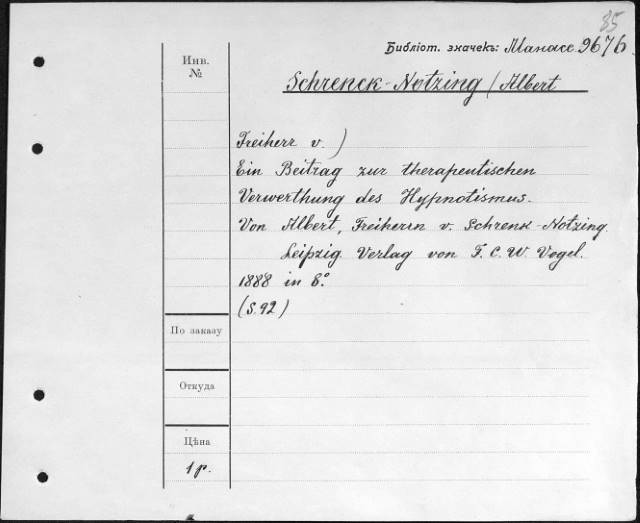 85
Библіот. значекъ: Манасс. 9676.
Инв.
№
Schrenck-Notzing (Albert
Freiherr v. )
Ein Beitrag zur therapeutischen
Verwerthung des Hypnotismus.
Von Albert, Freiherrn v. Schrenk-Notzing.
Leipzig. Verlag von F. C. W. Vogel.
1888 in 8.°
(S. 92)
По заказу
Откуда
Цѣна
1 р.